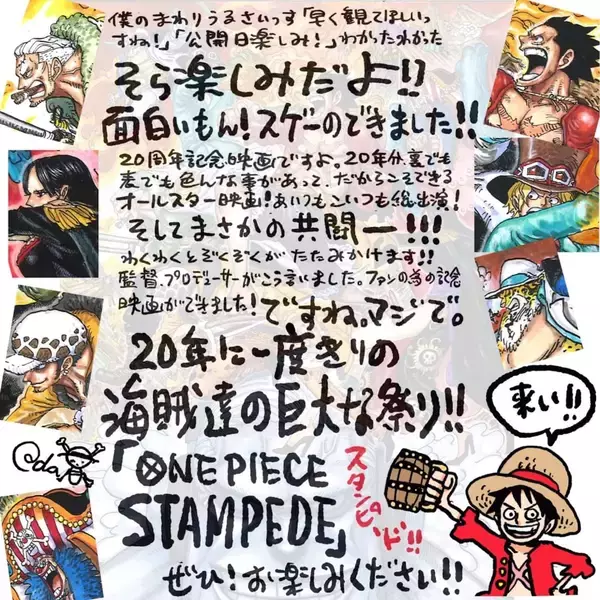 僕のまわりうるさいっす「早く観てほしいっ
すね!」「公開日楽しみ!」わかったわかった
そら楽しみだよ!!
面白いもん!スゲーのできました!!
20周年記念映画ですよ。20年分、裏でも
表でも色んな事があって、だからこそできる
オールスター映画!あいつもこいつも総出演!
そしてまさかの共闘ー!!!
わくわくとぞくぞくがたたみかけます!!
監督、プロデューサーがこう言いました。ファンの為の記念
映画ができました!ですね。マジで。
20年に一度きりの
海賊達の巨大な祭り!!
「ONE PIECE
STAMPEDE」
スタンピード!!
ぜひ!お楽しみください!!
来い!!
@da